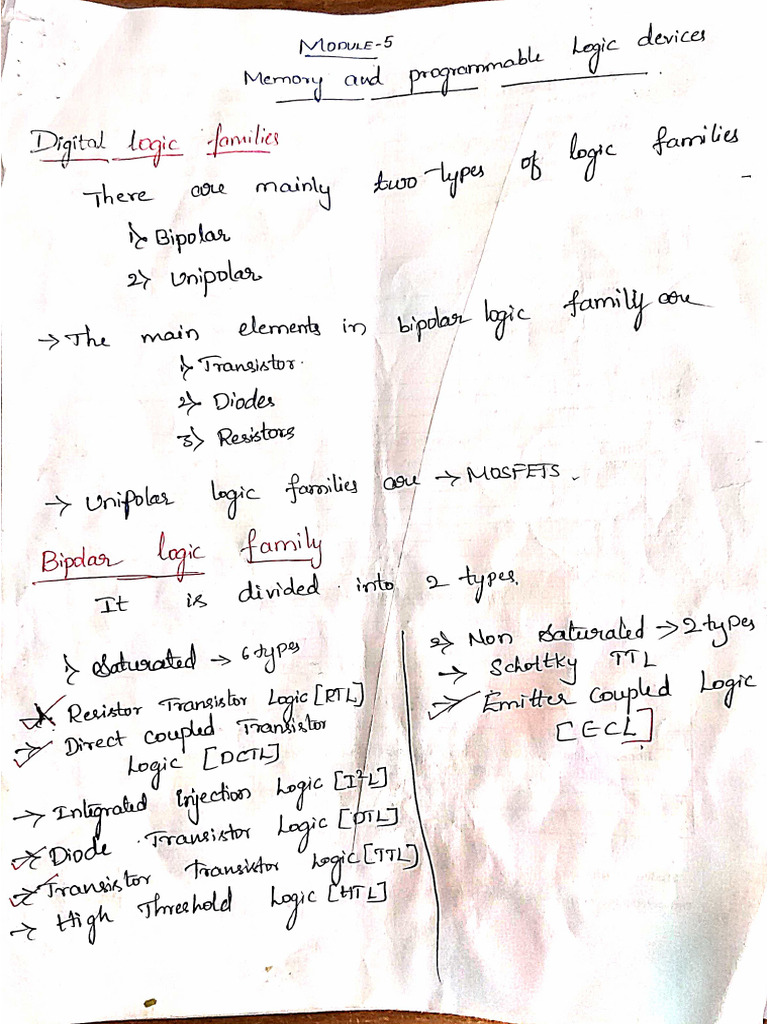 MODULE-5
Memory and programmable Logic devices
Digital logic families
There are mainly two-types of logic families
1) Bipolar
2) Unipolar
→ The main elements in bipolar logic family are
1) Transistor.
2) Diodes
3) Resistors
→ Unipolar logic families are → MOSFETS.
Bipolar logic family
It is divided into 2 types.
1) Saturated → 6 types
→ Resistor Transistor Logic [RTL]
→ Direct coupled Transistor
Logic [DCTL]
→ Integrated Injection Logic [I²L]
→ Diode Transistor Logic [DTL]
→ Transistor Transistor Logic [TTL]
→ High Threshold Logic [HTL]
2) Non Saturated → 2 types
→ Schottky TTL
→ Emitter Coupled Logic
[ECL]